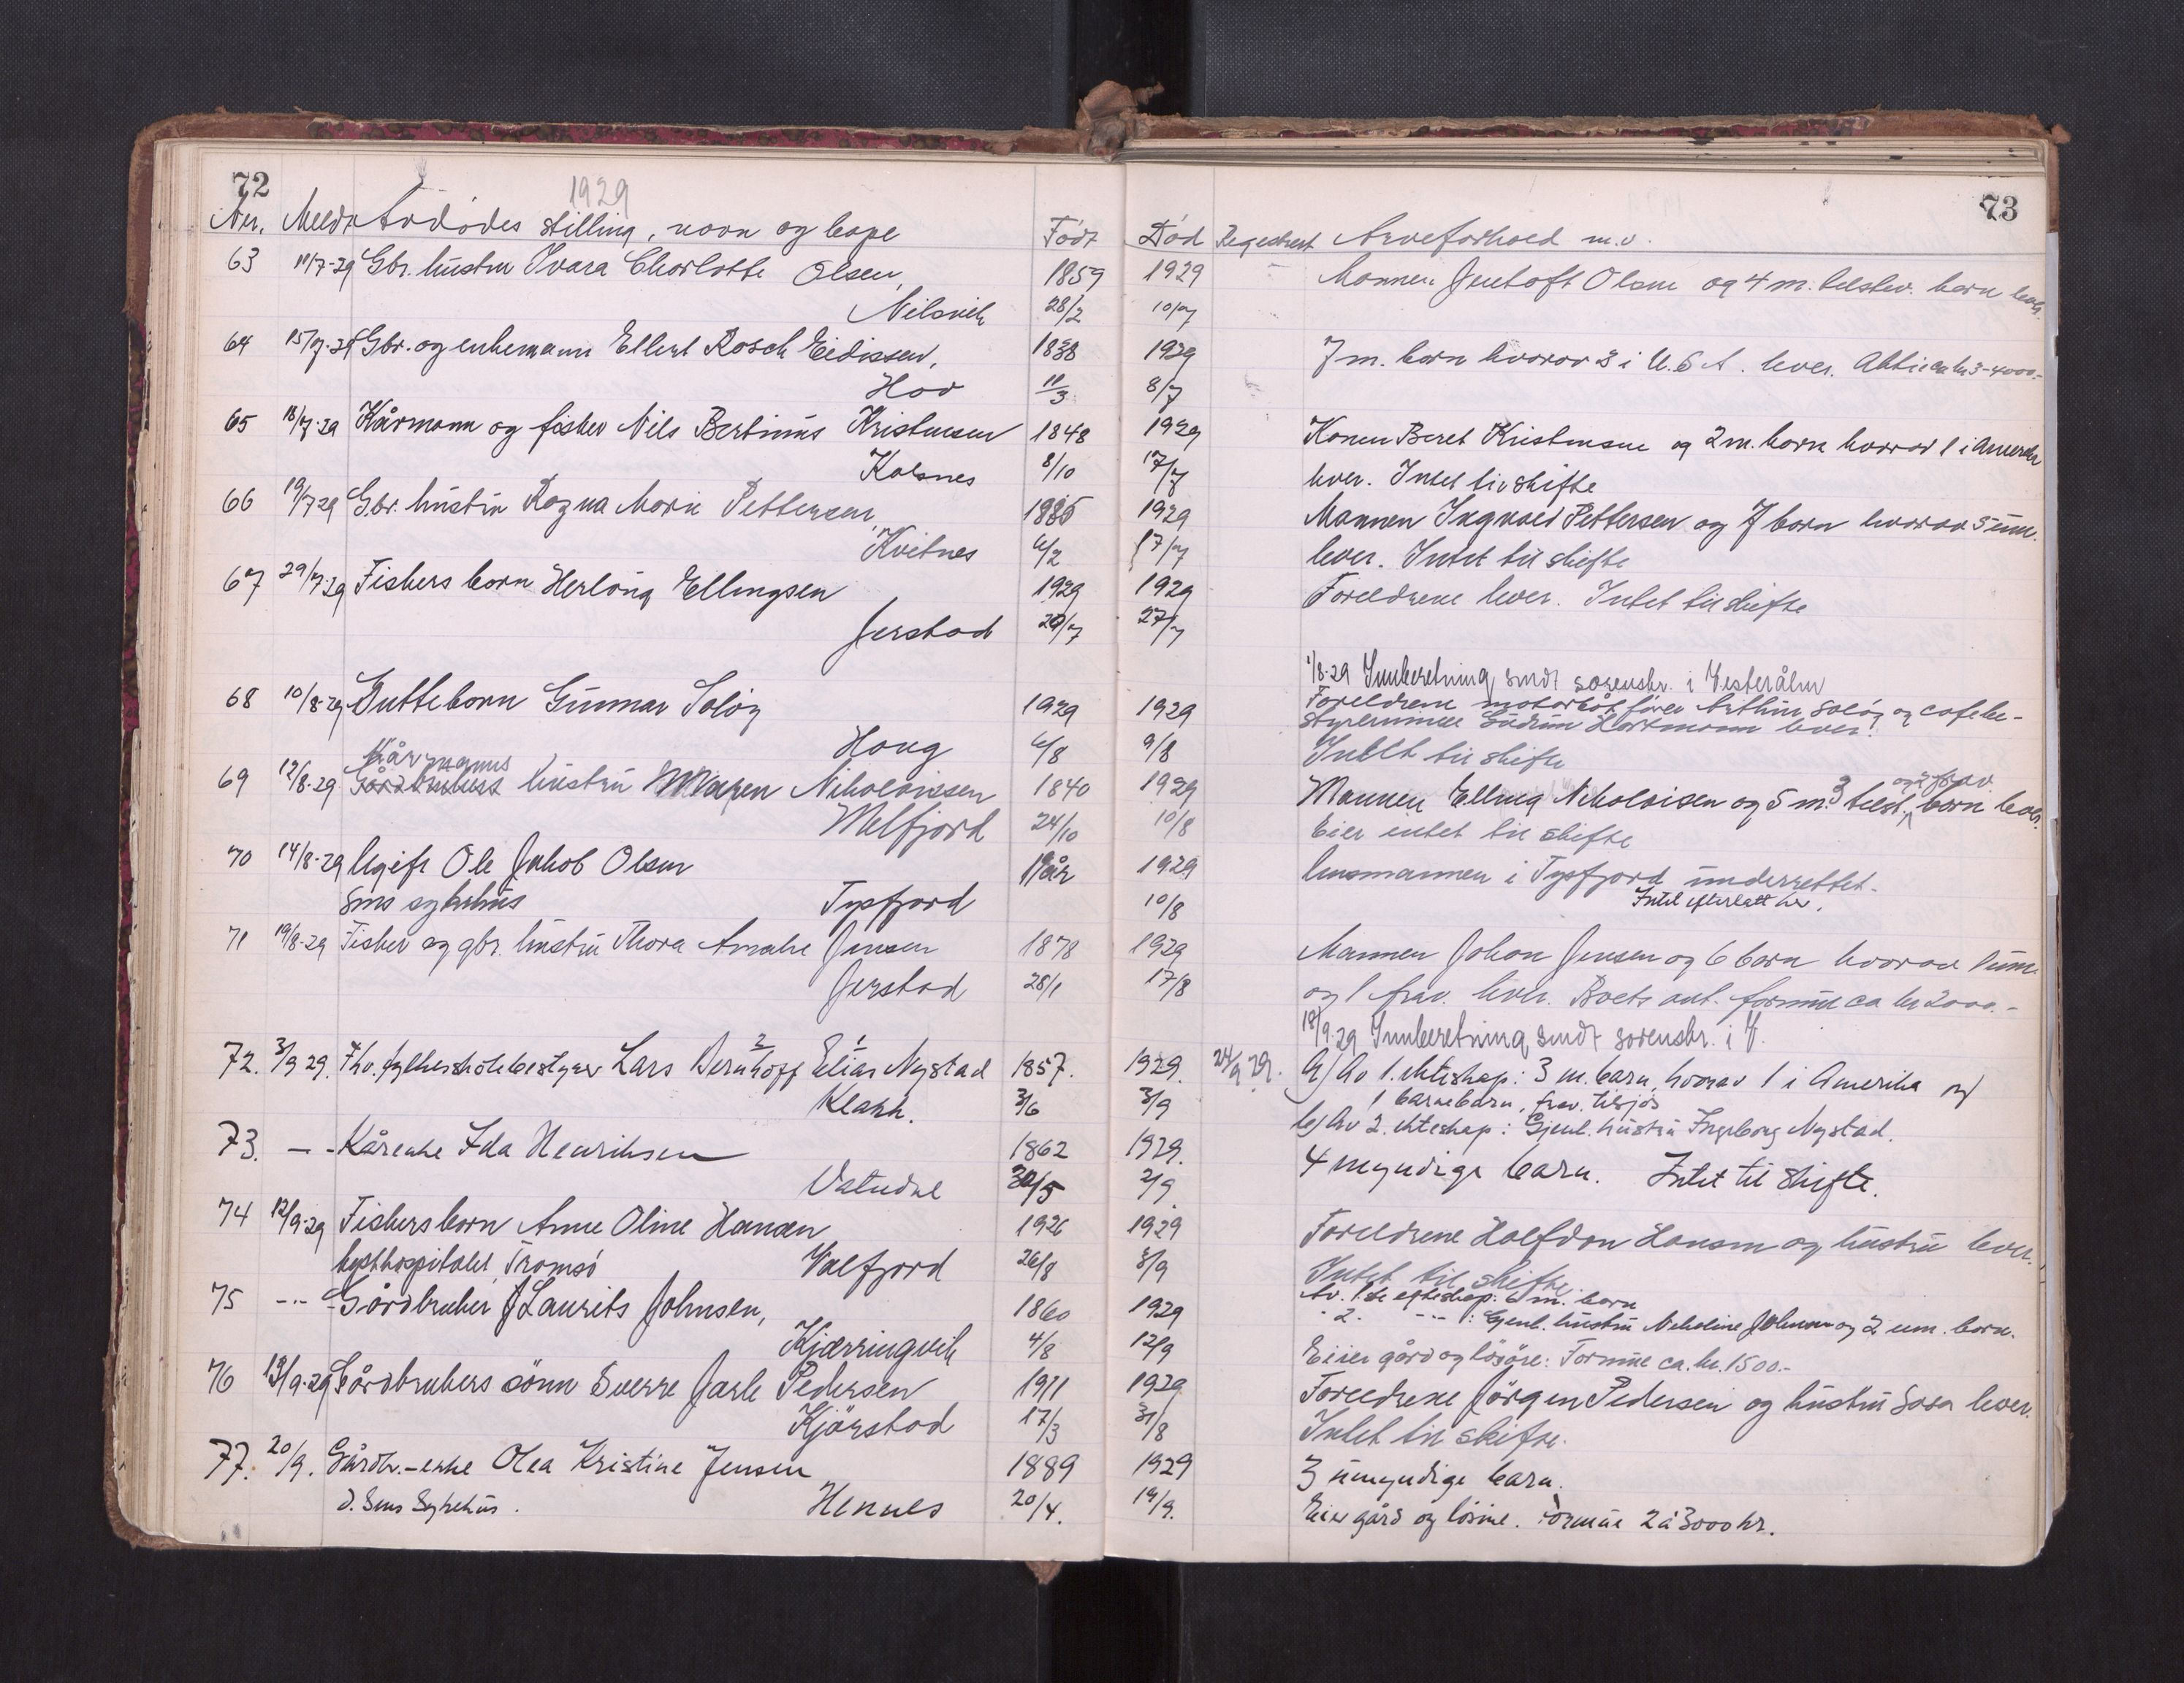 72
1929
Nr. Meldt Avdødes stilling, navn og bopel Født
63 11/7-29 Gbr. hustru Ivara Charlotte Olsen, 1859
Nilsvik 28/2
64 15/7-29 Gbr. og enkemann Ellert Rosch Eidissen, 1838
Hov 11/3
65 18/7-29 Kårmann og fisker Nils Bertinus Kristensen 1848
Kalsnes 8/10
66 19/7-29 Gbr. hustru Ragna Marie Pettersen, 1885
Kvitnes 6/2
67 29/7-29 Fiskers barn Herlaug Ellingsen 1929
Jerstad 20/7
68 10/8-29 Gutteborn Gunnar Solöy 1929
Haug 6/8
Kårmanns
69 12/8-29 Gårdbrukers hustru Maren Nikolaisen 1840
Melfjord 24/10
70 14/8-29 Ugift Ole Jakob Olsen 19 år
Sms sykehus Tysfjord
71 19/8-29 Fisker og gbr. hustru Thora Amalie Jensen 1878
Jerstad 28/1
72. 3/9 29. Fhv. fylkesskolebestyrer Lars Bernhoff Elias Nystad 1857.
Klakk. 3/6
73. - - Kårenke Ida Henriksen 1862
Vatndal 30/5
74 12/9-29 Fiskers barn Anne Oline Hansen 1926
kysthospitalet, Tromsö Valfjord 26/8
75 - - Gårdbruker J Laurits Johnsen, 1860
Kjærringvik 4/8
76 13/9-29 Gårdbrukers sönn Sverre Jarle Pedersen 1911
Kjörstad 17/3
77. 20/9. Gårdbr.-enke Olea Kristine Jensen 1889
d. Sms Sykehus. Hennes 20/4.
73
Död Regestrert Arveforhold m.v.
1929 Mannen Jentoft Olsen og 4 m. tilstev. barn lever.
10/7
1929 7 m. barn hvorav 3 i U.S.A. lever. Aktiva kr 3-4000.-
8/7
1929 Konen Beret Kristensen og 2 m. barn hvorav 1 i Amerika
17/7 lever. Intet til skifte
1929 Mannen Ingvald Pettersen og 7 barn hvorav 5 um.
17/7 lever. Intet til skifte
1929 Foreldrene lever. Intet til skifte
27/7
1/8-29 Innberetning sendt sorenskr. i Vesterålen
1929 Foreldrene motorbåtförer Arthur Solöy og cafebe-
styrerinne Gudrun Hartmann lever.
9/8 Intet til skifte
og 2 frav.
1929 Mannen Elling Nikolaisen og 5 m. 3 tilst. barn lever.
10/8 Eier intet til skifte
1929 Lensmannen i Tysfjord underrettet.
10/8 Intet efterlatt her.
1929 Mannen Johan Jensen og 6 barn hvorav 1 um.
17/8 og 1 frav. lever. Boets ant. formue ca kr 2000.-
18/9-29 Innberetning sendt sorenskr. i V.
1929. 24/9 29. a/ Av 1. ekteskap: 3 m. barn, hvorav 1 i Amerika og
1 barnebarn, frav. tilsjøs
3/9 b/ Av 2. ekteskap: Gjenl. hustru Ingeborg Nystad.
1929. 4 myndige barn. Intet til skifte.
2/9
1929 Foreldrene Halfdan Hansen og hustru lever.
8/9 Intet til skifte
Av. 1ste ekteskap: 6 m. barn
1929 - 2. - - : Gjenl. hustru Nikoline Johnsen og 2 um. barn.
12/9 Eier gård og lösöre: Formue ca. kr. 1500.-
1929 Foreldrene Jörgen Pedersen og hustru Sara lever.
31/8 Intet til skifte.
1929 3 umyndige barn.
19/9. Eier gård og lösöre. Formue 2 à 3000 kr.